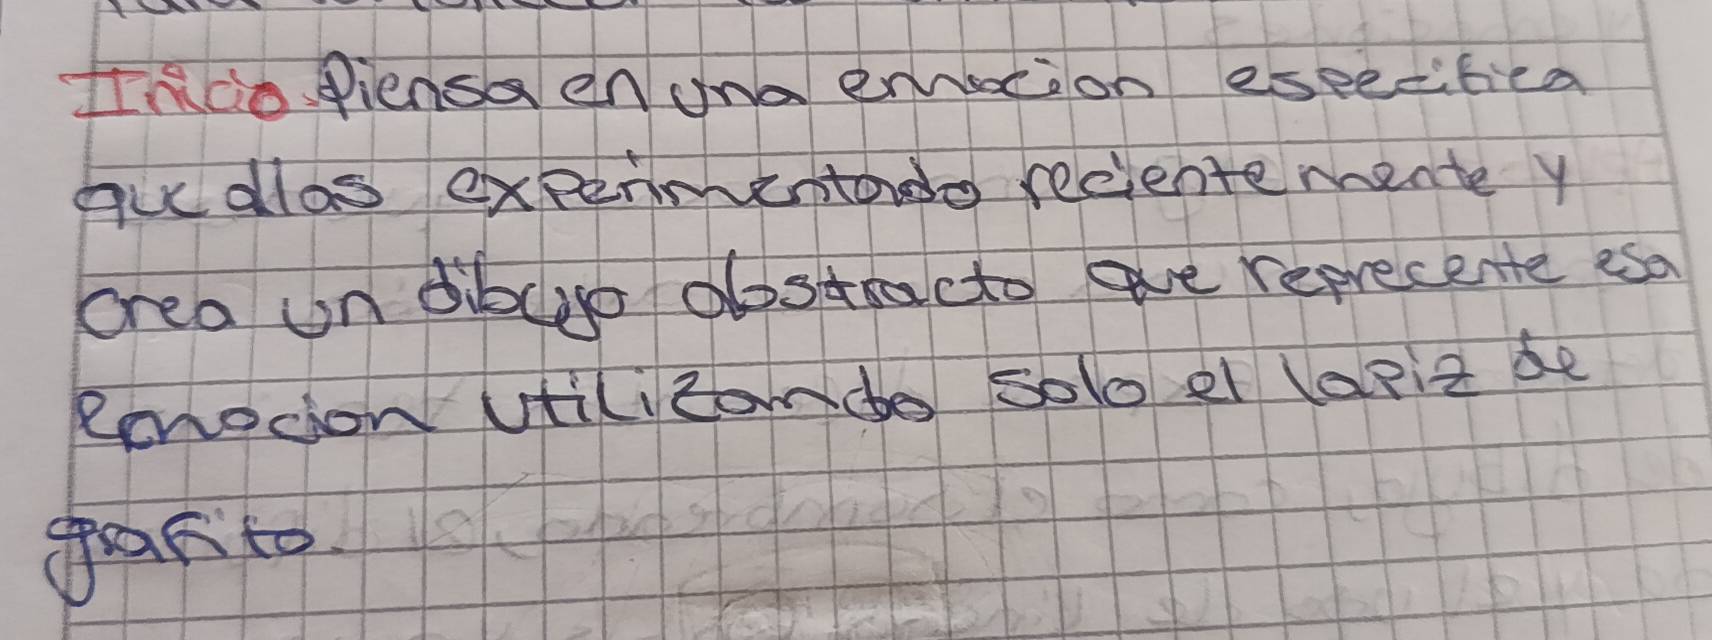 Inicio. Piensa en una emocion especifica
que allas experimentado recientemente y
crea un dibujo abstracto que reprecente esa
emocion utilizando solo el lapiz de
grafito.